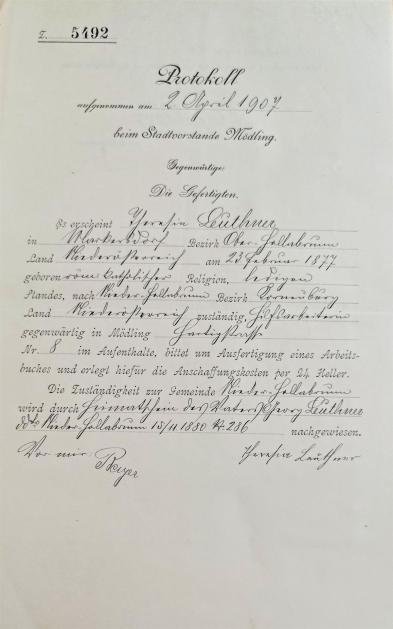 Z. 5492
Protokoll
aufgenommen am 2 April 1907
beim Stadtvorstande Mödling.
Gegenwärtige:
Die Gefertigten.
Es erscheint Theresia Leuthner
in Bezirk Ober-Hollabrunn
Land Niederösterreich am 23 Februar 1877
geboren röm. Catholischer Religion, ledigen
Standes, nach Nieder-Hollabrunn Bezirk Korneuburg
Land Niederösterreich zuständig, Hilfsarbeiterin
gegenwärtig in Mödling
Nr. 8 im Aufenthalte, bittet um Ausfertigung eines Arbeits-
buches und erlegt hiefür die Anschaffungskosten per 24 Heller.
Die Zuständigkeit zur Gemeinde Nieder-Hollabrunn
wird durch Heimathschein des Vaters Georg Leuthner
ddto Nieder-Hollabrunn 15/11 1880 Nr. 286 nachgewiesen.
Vor mir: Theresia Leuthner